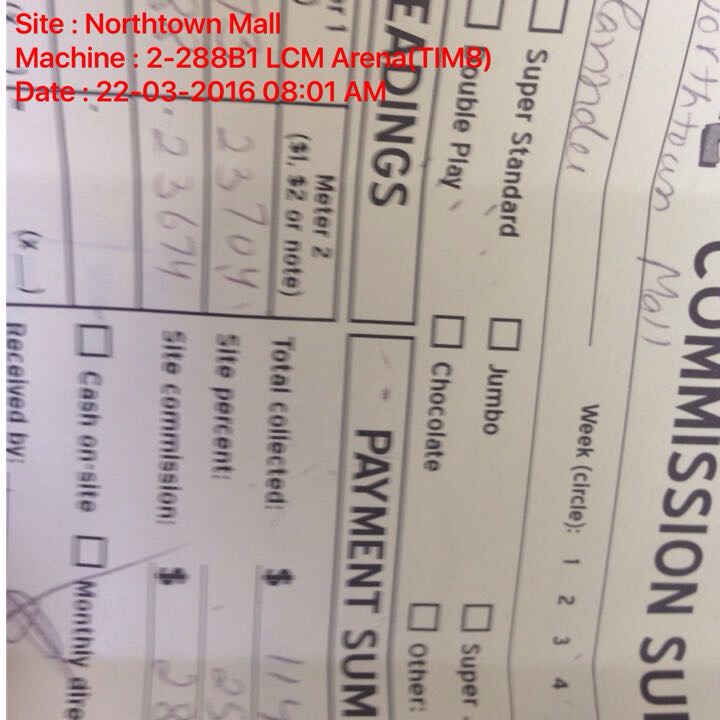 Site : Northtown Mall
Machine : 2-288B1 LCM Arena(TIMB)
Date : 22-03-2016 08:01 AM
COMMISSION SU
Northtown Mall
Week (circle): 1 2 3 4
Super Standard Jumbo Super
Double Play Chocolate Other:
EADINGS
PAYMENT SUM
er 1
Meter 2
($1, $2 or note)
23704
23674
(x __)
Total collected: $ 114
Site percent: 25
Site commission: $ 28
Cash on-site Monthly dire
Received by: